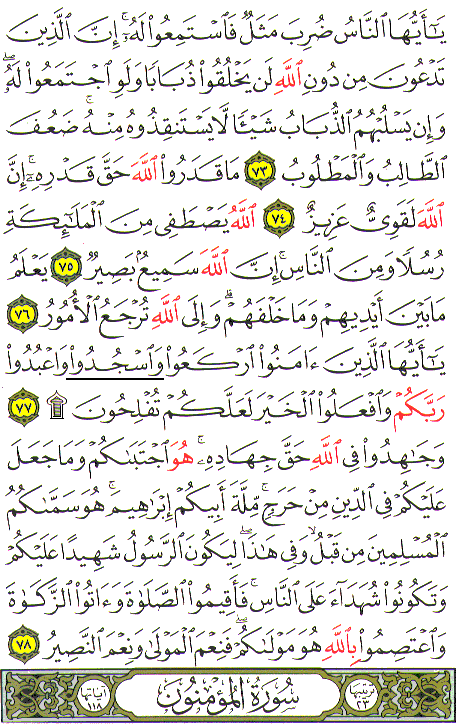 يَـٰٓأَيُّهَا ٱلنَّاسُ ضُرِبَ مَثَلٌ فَٱسْتَمِعُوا۟ لَهُۥٓ ۚ إِنَّ ٱلَّذِينَ
تَدْعُونَ مِن دُونِ ٱللَّهِ لَن يَخْلُقُوا۟ ذُبَابًا وَلَوِ ٱجْتَمَعُوا۟ لَهُۥ ۖ
وَإِن يَسْلُبْهُمُ ٱلذُّبَابُ شَيْـًٔا لَّا يَسْتَنقِذُوهُ مِنْهُ ۚ ضَعُفَ
ٱلطَّالِبُ وَٱلْمَطْلُوبُ ٧٣ مَا قَدَرُوا۟ ٱللَّهَ حَقَّ قَدْرِهِۦٓ ۗ إِنَّ
ٱللَّهَ لَقَوِىٌّ عَزِيزٌ ٧٤ ٱللَّهُ يَصْطَفِى مِنَ ٱلْمَلَـٰٓئِكَةِ
رُسُلًا وَمِنَ ٱلنَّاسِ ۚ إِنَّ ٱللَّهَ سَمِيعٌۢ بَصِيرٌ ٧٥ يَعْلَمُ
مَا بَيْنَ أَيْدِيهِمْ وَمَا خَلْفَهُمْ ۗ وَإِلَى ٱللَّهِ تُرْجَعُ ٱلْأُمُورُ ٧٦
يَـٰٓأَيُّهَا ٱلَّذِينَ ءَامَنُوا۟ ٱرْكَعُوا۟ وَٱسْجُدُوا۟ وَٱعْبُدُوا۟
رَبَّكُمْ وَٱفْعَلُوا۟ ٱلْخَيْرَ لَعَلَّكُمْ تُفْلِحُونَ ۩ ٧٧
وَجَـٰهِدُوا۟ فِى ٱللَّهِ حَقَّ جِهَادِهِۦ ۚ هُوَ ٱجْتَبَىٰكُمْ وَمَا جَعَلَ
عَلَيْكُمْ فِى ٱلدِّينِ مِنْ حَرَجٍ ۚ مِّلَّةَ أَبِيكُمْ إِبْرَٰهِيمَ ۚ هُوَ سَمَّىٰكُمُ
ٱلْمُسْلِمِينَ مِن قَبْلُ وَفِى هَـٰذَا لِيَكُونَ ٱلرَّسُولُ شَهِيدًا عَلَيْكُمْ
وَتَكُونُوا۟ شُهَدَآءَ عَلَى ٱلنَّاسِ ۚ فَأَقِيمُوا۟ ٱلصَّلَوٰةَ وَءَاتُوا۟ ٱلزَّكَوٰةَ
وَٱعْتَصِمُوا۟ بِٱللَّهِ هُوَ مَوْلَىٰكُمْ ۖ فَنِعْمَ ٱلْمَوْلَىٰ وَنِعْمَ ٱلنَّصِيرُ ٧٨
ترتيبها ٢٣ سُورَةُ المُؤْمِنُون آياتها ١١٨